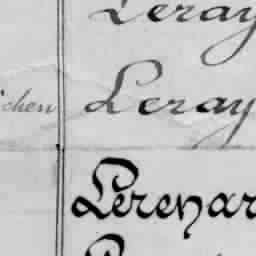 Leray
chen Leray
Lerenar